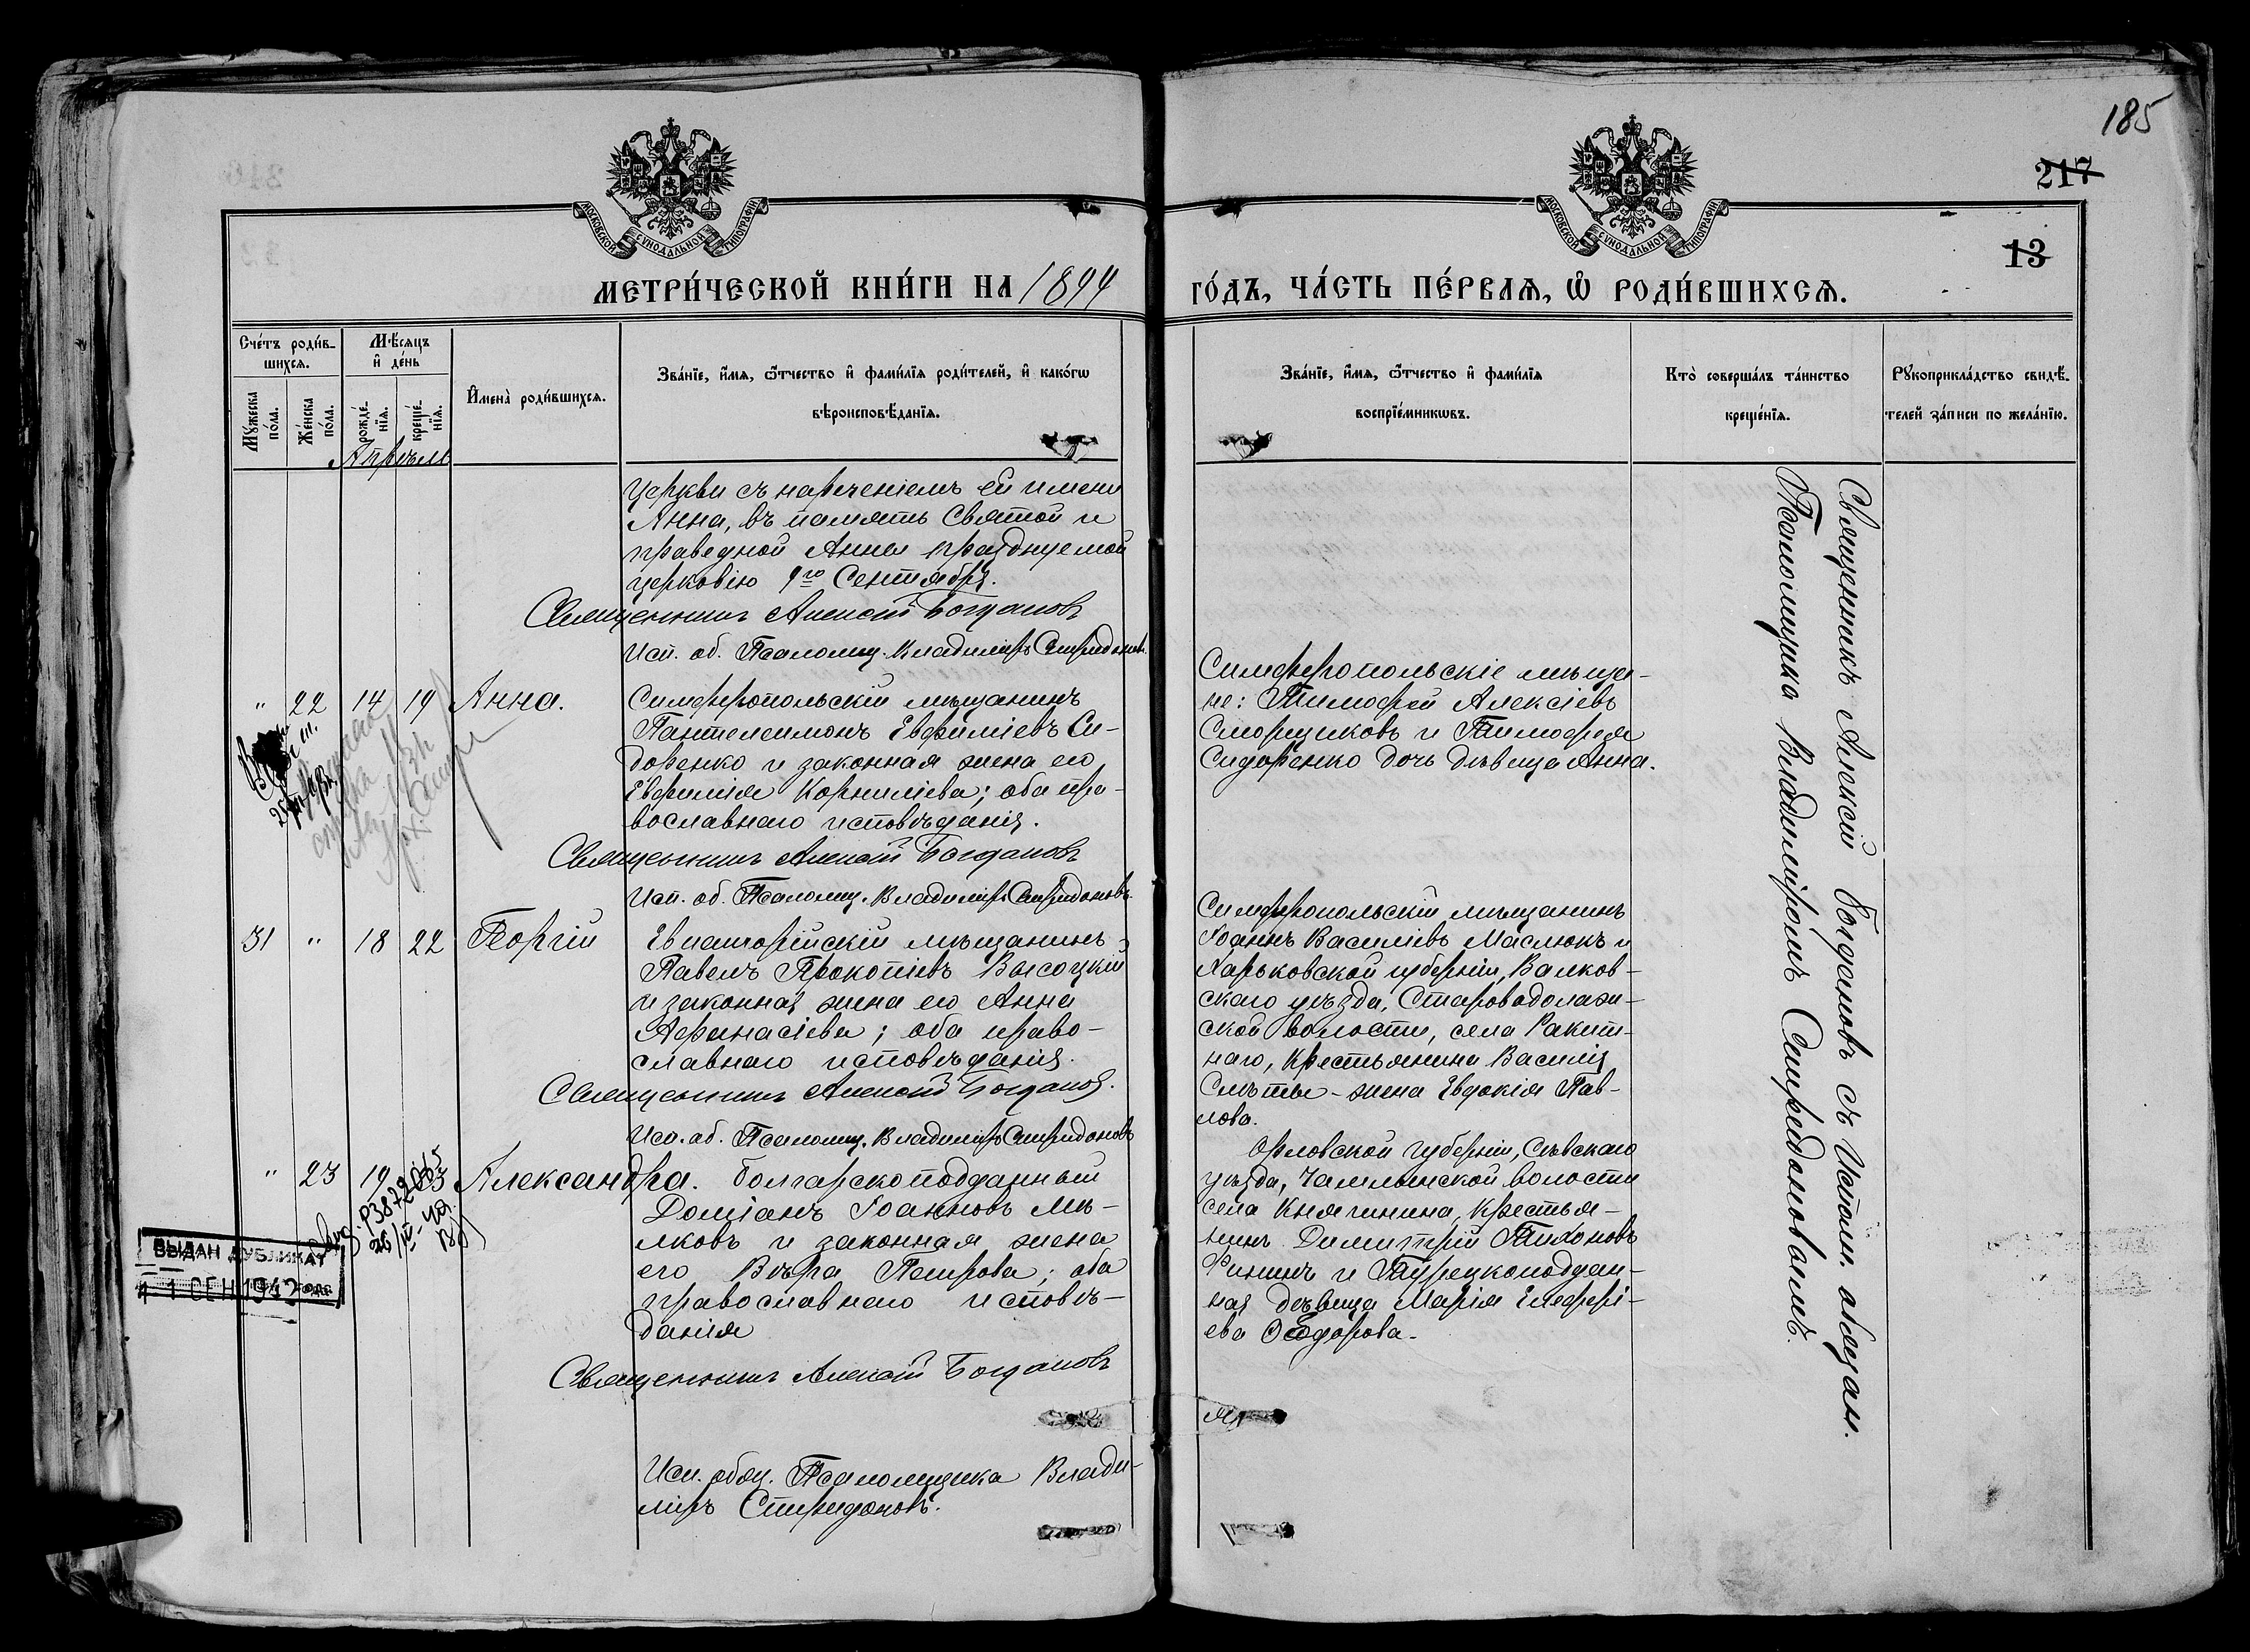 185
217
13
МОСКОВСКОЙ СѴНОДАЛЬНОЙ ТИПОГРАФІИ
МОСКОВСКОЙ СѴНОДАЛЬНОЙ ТИПОГРАФІИ
МЕТРИ́ЧЕСКОЙ КНИ́ГИ НА 1894
ГО́ДЪ, ЧА́СТЬ ПЕ́РВАЯ, Ѡ҆ РОДИ́ВШИХСЯ.
Сче́тъ роди́в-
шихся.
Мѣ́сяцъ
и҆ де́нь
Му́жеска
по́ла.
Же́нска
по́ла.
рожде́-
нїя.
креще́-
нїя.
И҆мена̀ роди́вшихся.
Зва́нїе, и҆́мя, ѻ҆́тчество и҆ фами́лїя роди́телей, и҆ како́гѡ
вѣроисповѣ́данїя.
Зва́нїе, и҆́мя, ѻ҆́тчество и҆ фами́лїя
воспрїе́мникѡвъ.
Кто̀ соверша́лъ та́инство
креще́нїя.
Рꙋкоприкла́дство свидѣ́-
телей за́писи по жела́нїю.
Апрѣль
церкви съ нареченіемъ ей имени
Анна, въ память Святой и
праведной Анны празднуемой
церковію 9го Сентября.
Священникъ Алексій Богдановъ
Исп. об. Псаломщ. Владиміръ Спиридоновъ.
" 22 14 19 Анна.
Симферопольскій мѣщанинъ
Пантелеимонъ Евфиміевъ Си-
доренко и законная жена его
Евфимія Корниліева; оба пра-
вославнаго исповѣданія.
Священникъ Алексій Богдановъ
Исп. об. Псаломщ. Владиміръ Спиридоновъ.
Симферопольскіе мѣща-
не: Тимофей Алексіевъ
Сморщиковъ и Тимофея
Сидоренко дочь дѣвица Анна.
31 " 18 22 Георгій
Евпаторійскій мѣщанинъ
Павелъ Прокопіевъ Высоцкій
и законная жена его Анна
Афанасіева; оба право-
славнаго исповѣданія.
Священникъ Алексій Богдановъ.
Исп. об. Псаломщ. Владиміръ Спиридоновъ
Симферопольскій мѣщанинъ
Іоаннъ Василіевъ Маслюкъ и
Харьковской губерніи, Валков-
скаго уѣзда, Староводолаж-
ской волости, села Ракит-
наго, крестьянина Василія
жена Евдокія Пав-
лова.
" 23 19 Александра.
Болгарскоподданный
Доміанъ Іоанновъ Ми-
лковъ и законная жена
его Вѣра Петрова; оба
православнаго исповѣ-
данія
Священникъ Алексій Богдановъ
Исп. обяз. Псаломщика Влади-
міръ Спиридоновъ.
Орловской губерніи, Сѣвскаго
уѣзда, волости
села Княгинина, крестья-
нинъ Димитрій Тихоновъ
Фининъ и Турецкоподдан-
ная дѣвица Марія Елефері-
ева Ѳеодорова.
Священникъ Алексій Богдановъ съ Исполн. обязан.
Псаломщика Владиміромъ Спиридоновымъ.
ВЫДАН ДУБЛИКАТ
1 СЕН 1942 года